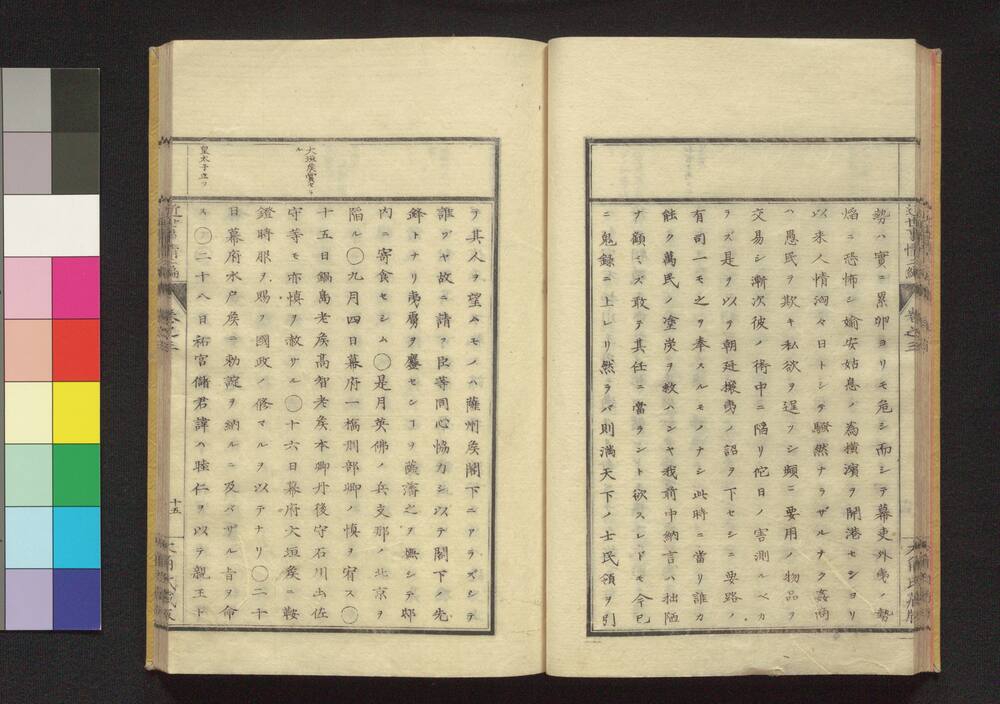 勢ハ實ニ累卵ヨリモ危シ而シテ幕吏外夷ノ勢
焰ニ恐怖シ媮安姑息ノ為横濱ヲ開港セシヨリ
以来人情洶々日トシテ騒然ナラザルナク姦商
ハ愚民ヲ欺キ私欲ヲ逞フシ頻ニ要用ノ物品ヲ
交易シ漸次彼ノ術中ニ陥リ佗日ノ害測ルベカ
ラズ是ヲ以テ朝廷攘夷ノ詔ヲ下セシニ要路ノ
有司一モ之ヲ奉スルモノナシ此時ニ當リ誰カ
能ク萬民ノ塗炭ヲ救ハンヤ我前中納言ハ拙陋
ヲ顧ミズ敢テ其任ニ當ラント欲スレドモ今已
ニ鬼録ニ上レリ然ラバ則満天下ノ士民領ヲ引
テ其人ヲ望ムモノハ薩州矦閣下ニアラズシテ
誰ゾヤ故ニ請フ臣等同心協力シ以テ閣下ノ先
鋒トナリ夷虜ヲ鏖セン﹁ヲ薩藩之ヲ憮シテ邸
内ニ寄食セシム○是月英佛ノ兵支那ノ北京ヲ
陥ル○九月四日幕府一橋刑部卿ノ慎ヲ宥ス○
十五日鍋島老矦高智老矦本郷丹後守石川土佐
守等モ亦慎ヲ赦サル○十六日幕府大垣矦ニ鞍
鐙時服ヲ賜フ國政ノ修マルヲ以テナリ○二十
日幕府水戸矦ニ勅諚ヲ納ルニ及バザル旨ヲ命
ス○二十八日祐宮儲君諱ハ睦仁ヲ以テ親王ト
大垣矦賞セラ
ル
皇太子立ツ
近世事情二編
巻之三
十五